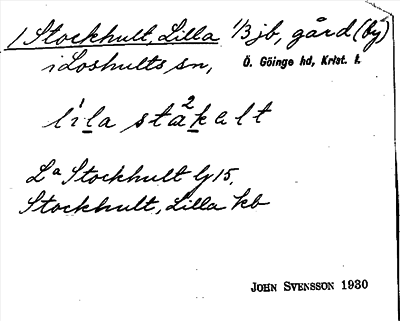 1 Stockhult, Lilla 1/3 jb, gård (by)
i Loshults sn, Ö. Göinge hd, Krist. l.
li̇la sta²kalt
La Stockhult lj 15.
Stockhult, Lilla kb
JOHN SVENSSON 1930